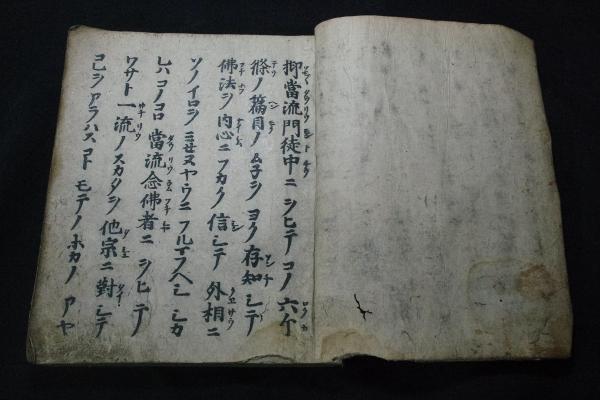 抑當流門徒中ニヲヒテコノ六ケ
條ノ篇目ノムネヲヨク存知シテ
佛法ヲ内心ニフカク信シテ外相ニ
ソノイロヲミセヌヤウニフルマフヘシシカ
レハコノコロ當流念佛者ニヲヒテ
ワサト一流ノスカタヲ他宗ニ對シテ
コレヲアラハスコトモテノホカノアヤ